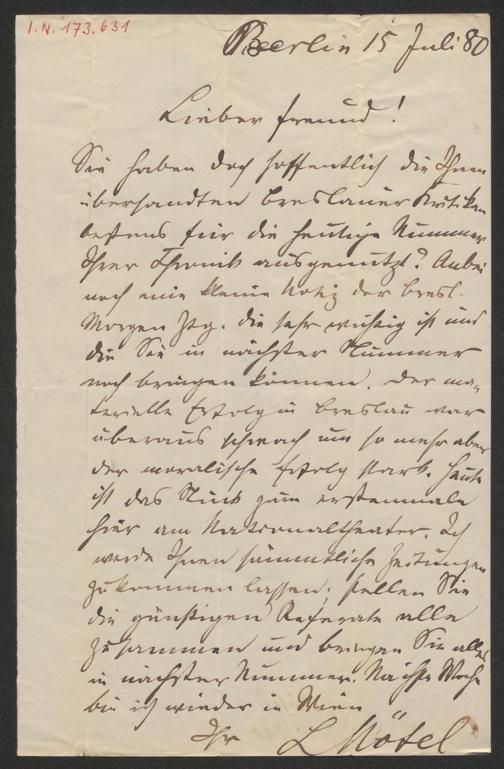 I.N. 173.631
Berlin 15 Juli 80
Lieber Freund!
Sie haben doch hoffentlich die Ihnen
übersandten Breslauer Kritiken
bestens für die heutige Nummer
Ihrer Chronik ausgenutzt? Anbei
noch eine kleine Notiz der Bresl.
Morgen Ztg. die sehr wichtig ist und
die Sie in nächster Nummer
noch bringen können. Der ma-
terielle Erfolg in Breslau war
überaus schwach um so mehr aber
der moralische Erfolg stark. Heute
ist das Stück zum erstenmale
hier am Nationaltheater. Ich
werde Ihnen sämmtliche Zeitungen
zukommen lassen; stellen Sie
die günstigen Referate alle
zusammen und bringen Sie alles
in nächster Nummer. Nächste Woche
bin ich wieder in Wien
Ihr L Mötel